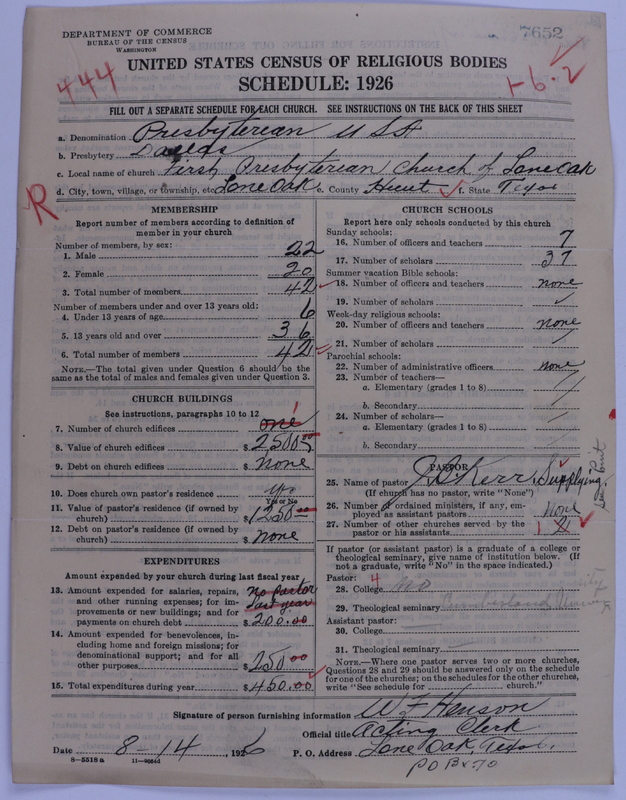 DEPARTMENT OF COMMERCE
BUREAU OF THE CENSUS
WASHINGTON
7652
UNITED STATES CENSUS OF RELIGIOUS BODIES
SCHEDULE: 1926
444
1-6.2
FILL OUT A SEPARATE SCHEDULE FOR EACH CHURCH. SEE INSTRUCTIONS ON THE BACK OF THIS SHEET
a. Denomination Presbyterian USA
b. Presbytery
c. Local name of church First Presbyterian Church of Lone Oak
d. City, town, village, or township, etc. Lone Oak e. County Hunt f. State Texas
R
MEMBERSHIP
Report number of members according to definition of member in your church
Number of members, by sex:
1. Male 22
2. Female 20
3. Total number of members 42
Number of members under and over 13 years old:
4. Under 13 years of age 6
5. 13 years old and over 36
6. Total number of members 42
NOTE.—The total given under Question 6 should be the
same as the total of males and females given under Question 3.
CHURCH BUILDINGS
See instructions, paragraphs 10 to 12
7. Number of church edifices one 1
8. Value of church edifices $2500.00
9. Debt on church edifices $ None
10. Does church own pastor's residence yes
Yes or No
11. Value of pastor's residence (if owned by
church) $1250.00
12. Debt on pastor's residence (if owned by
church) $ None
EXPENDITURES
Amount expended by your church during last fiscal year
13. Amount expended for salaries, repairs,
and other running expenses; for im-
provements or new buildings; and for
payments on church debt No Pastor last year $200.00
14. Amount expended for benevolences, in-
cluding home and foreign missions; for
denominational support; and for all
other purposes $250.00
15. Total expenditures during year $450.00
CHURCH SCHOOLS
Report here only schools conducted by this church
Sunday schools:
16. Number of officers and teachers 7
17. Number of scholars 37
Summer vacation Bible schools:
18. Number of officers and teachers none
19. Number of scholars
Week-day religious schools:
20. Number of officers and teachers none
21. Number of scholars
Parochial schools:
22. Number of administrative officers none
23. Number of teachers—
a. Elementary (grades 1 to 8)
b. Secondary
24. Number of scholars—
a. Elementary (grades 1 to 8)
b. Secondary
PASTOR
25. Name of pastor Kerr, Supplying
(If church has no pastor, write "None")
26. Number of ordained ministers, if any, em-
ployed as assistant pastors None
27. Number of other churches served by the
pastor or his assistants 1
If pastor (or assistant pastor) is a graduate of a college or
theological seminary, give name of institution below. (If
not a graduate, write "No" in the space indicated.)
Pastor: 4
28. College
29. Theological seminary
Assistant pastor:
30. College
31. Theological seminary
NOTE.—Where one pastor serves two or more churches,
Questions 28 and 29 should be answered only on the schedule
for one of the churches; on the schedules for the other churches,
write "See schedule for church."
Signature of person furnishing information W F Henson
Official title Acting Clerk
Date 8-14, 1926 P. O. Address Lone Oak, Texas.
8-5518a
PO Bx 70